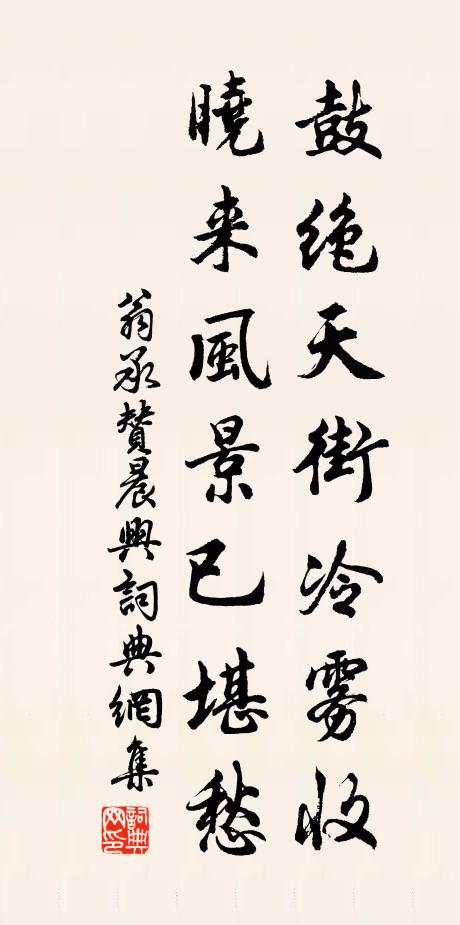 鼓绝天街冷雾收
曉来風景已堪愁
翁承贊晨興詞典網集
詞典網印